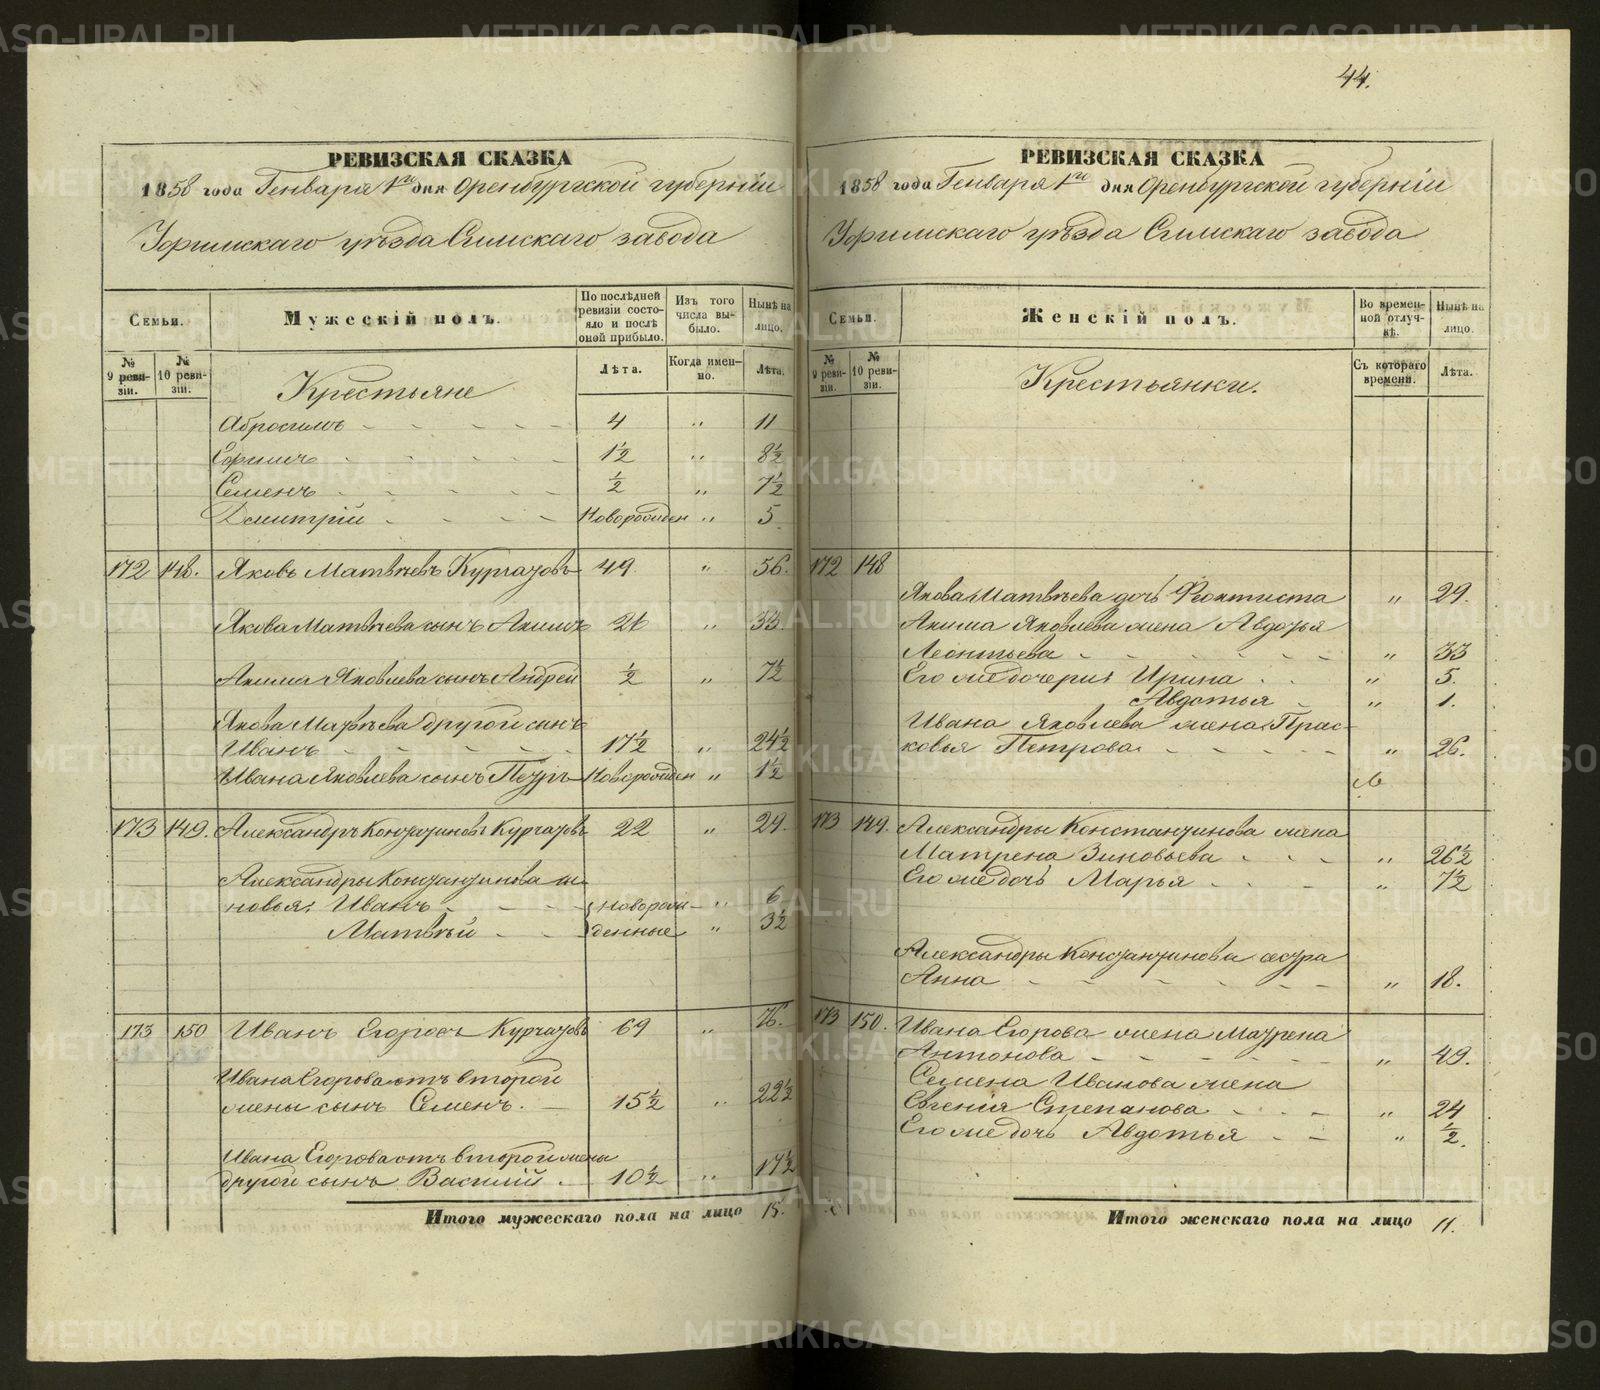 44.
РЕВИЗСКАЯ СКАЗКА
1858 года Генваря 1го дня Оренбургской губерніи
Уфимскаго уѣзда Симскаго завода
Семьи.
Мужескій полъ.
По послѣдней ревизіи состояло и послѣ оной прибыло.
Изъ того числа выбыло.
Нынѣ на лицо.
№ 9 ревизіи.
№ 10 ревизіи.
Крестьяне
Лѣта.
Когда именно.
Лѣта.
Абросимъ - - - - 4 " 11
Ефимъ - - - - 1½ " 8½
Семенъ - - - - ½ " 7½
Дмитрій - - - - Новорожден " 5
172 148. Яковъ Матвѣевъ Курчатовъ 49. " 56.
Якова Матвѣева сынъ Акимъ 26 " 33.
Акима Яковлева сынъ Андрей ½ " 7½
Якова Матвѣева другой сынъ
Иванъ - - - - 17½ " 24½
Ивана Яковлева сынъ Петръ Новорожден " 1½
173 149. Александръ Константиновъ Курчатовъ 22 " 29.
Александры Константинова сы-
новья: Иванъ - - - Новорож- " 6
Матвѣй - - денные " 3½
173 150 Иванъ Егоровъ Курчатовъ 69 " 76.
Ивана Егорова отъ второй
жены сынъ Семенъ. - 15½ " 22½
Ивана Егорова отъ второй жены
другой сынъ Василій - 10½ " 17½
Итого мужескаго пола на лицо 15.
РЕВИЗСКАЯ СКАЗКА
1858 года Генваря 1го дня Оренбургской губерніи
Уфимскаго уѣзда Симскаго завода
Семьи.
Женскій полъ.
Во временной отлучкѣ.
Нынѣ на лицо.
№ 9 ревизіи.
№ 10 ревизіи.
Крестьянки.
Съ котораго времени.
Лѣта.
172 148
Якова Матвѣева дочь Феоктиста " 29.
Акима Яковлева жена Авдотья
Леонтьева - - - - - " 33
Его же дочери: Ирина - - " 5.
Авдотья - " 1.
Ивана Яковлева жена Прас-
ковья Петрова - - - - " 26.
173 149. Александры Константинова жена
Матрена Зиновьева - - - " 26½
Его же дочь Марья - - - " 7½
Александры Константинова сестра
Анна - - - - - - " 18.
173 150. Ивана Егорова жена Матрена
Антонова - - - - - " 49.
Семена Иванова жена
Евгенія Степанова - - - " 24
Его же дочь Авдотья - - " ½.
Итого женскаго пола на лицо 11.
METRIKI.GASO-URAL.RU